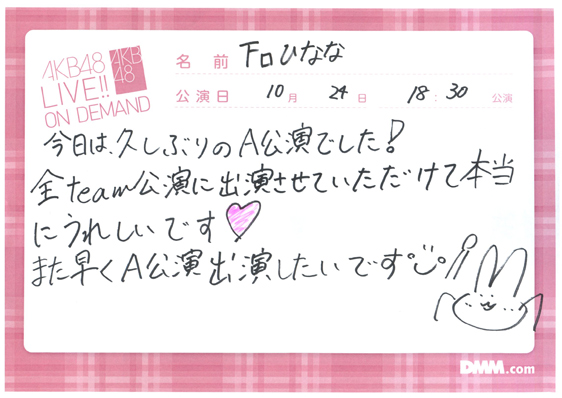 AKB48
LIVE!!
ON DEMAND
AKB
48
名前 下口ひなな
公演日 10月 24日 18:30 公演
今日は、久しぶりのA公演でした!
全team公演に出演させていただけて本当
にうれしいです♡
また早くA公演出演したいです
DMM.com